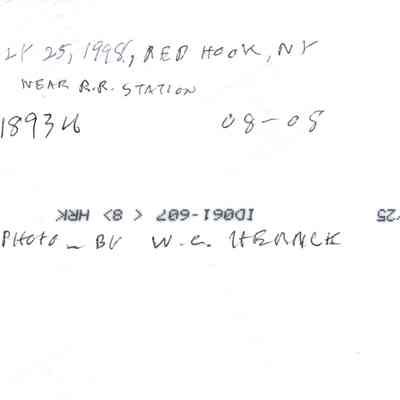 LY 25, 1998, RED HOOK, NY
NEAR R.R. STATION
18934 08-08
ID061-607 < 8> HRK
PHOTO - BY W.C. HERRICK